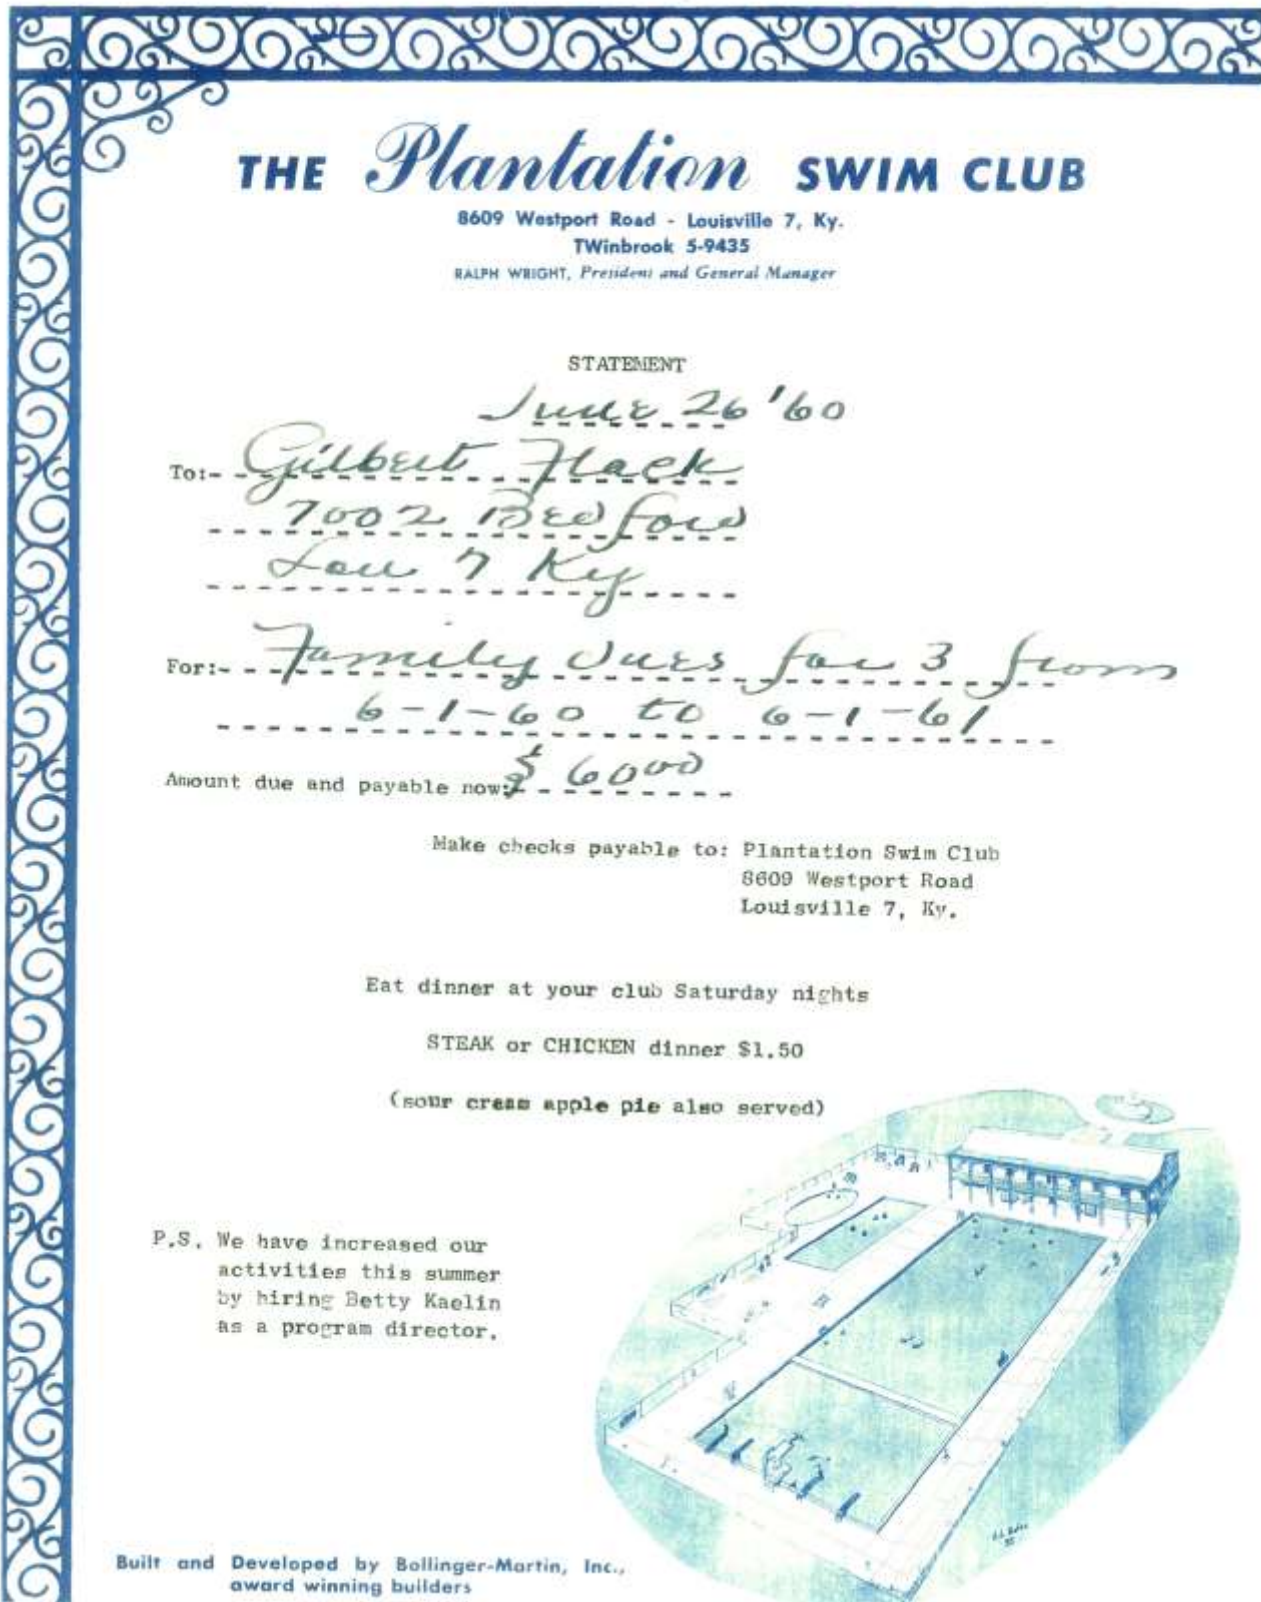 THE Plantation SWIM CLUB
8609 Westport Road - Louisville 7, Ky.
TWinbrook 5-9435
RALPH WRIGHT, President and General Manager
STATEMENT
June 26 '60
To:- Gilbert Flack
7002 Bedford
Lou 7 Ky
For:- Family Dues for 3 from
6-1-60 to 6-1-61
Amount due and payable now: $ 60 00
Make checks payable to: Plantation Swim Club
8609 Westport Road
Louisville 7, Ky.
Eat dinner at your club Saturday nights
STEAK or CHICKEN dinner $1.50
(sour cream apple pie also served)
P.S. We have increased our
activities this summer
by hiring Betty Kaelin
as a program director.
Built and Developed by Bollinger-Martin, Inc.,
award winning builders